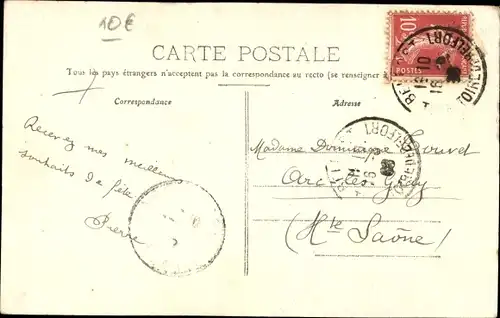 10€
CARTE POSTALE
Tous les pays étrangers n'acceptent pas la correspondance au recto (se renseigner à
Correspondance
Adresse
10c
POSTES
12 10
18-
Recevez mes meilleurs
souhaits de fête
Pierre
Madame Dominique
Arc les Gray
(Hte Saône)